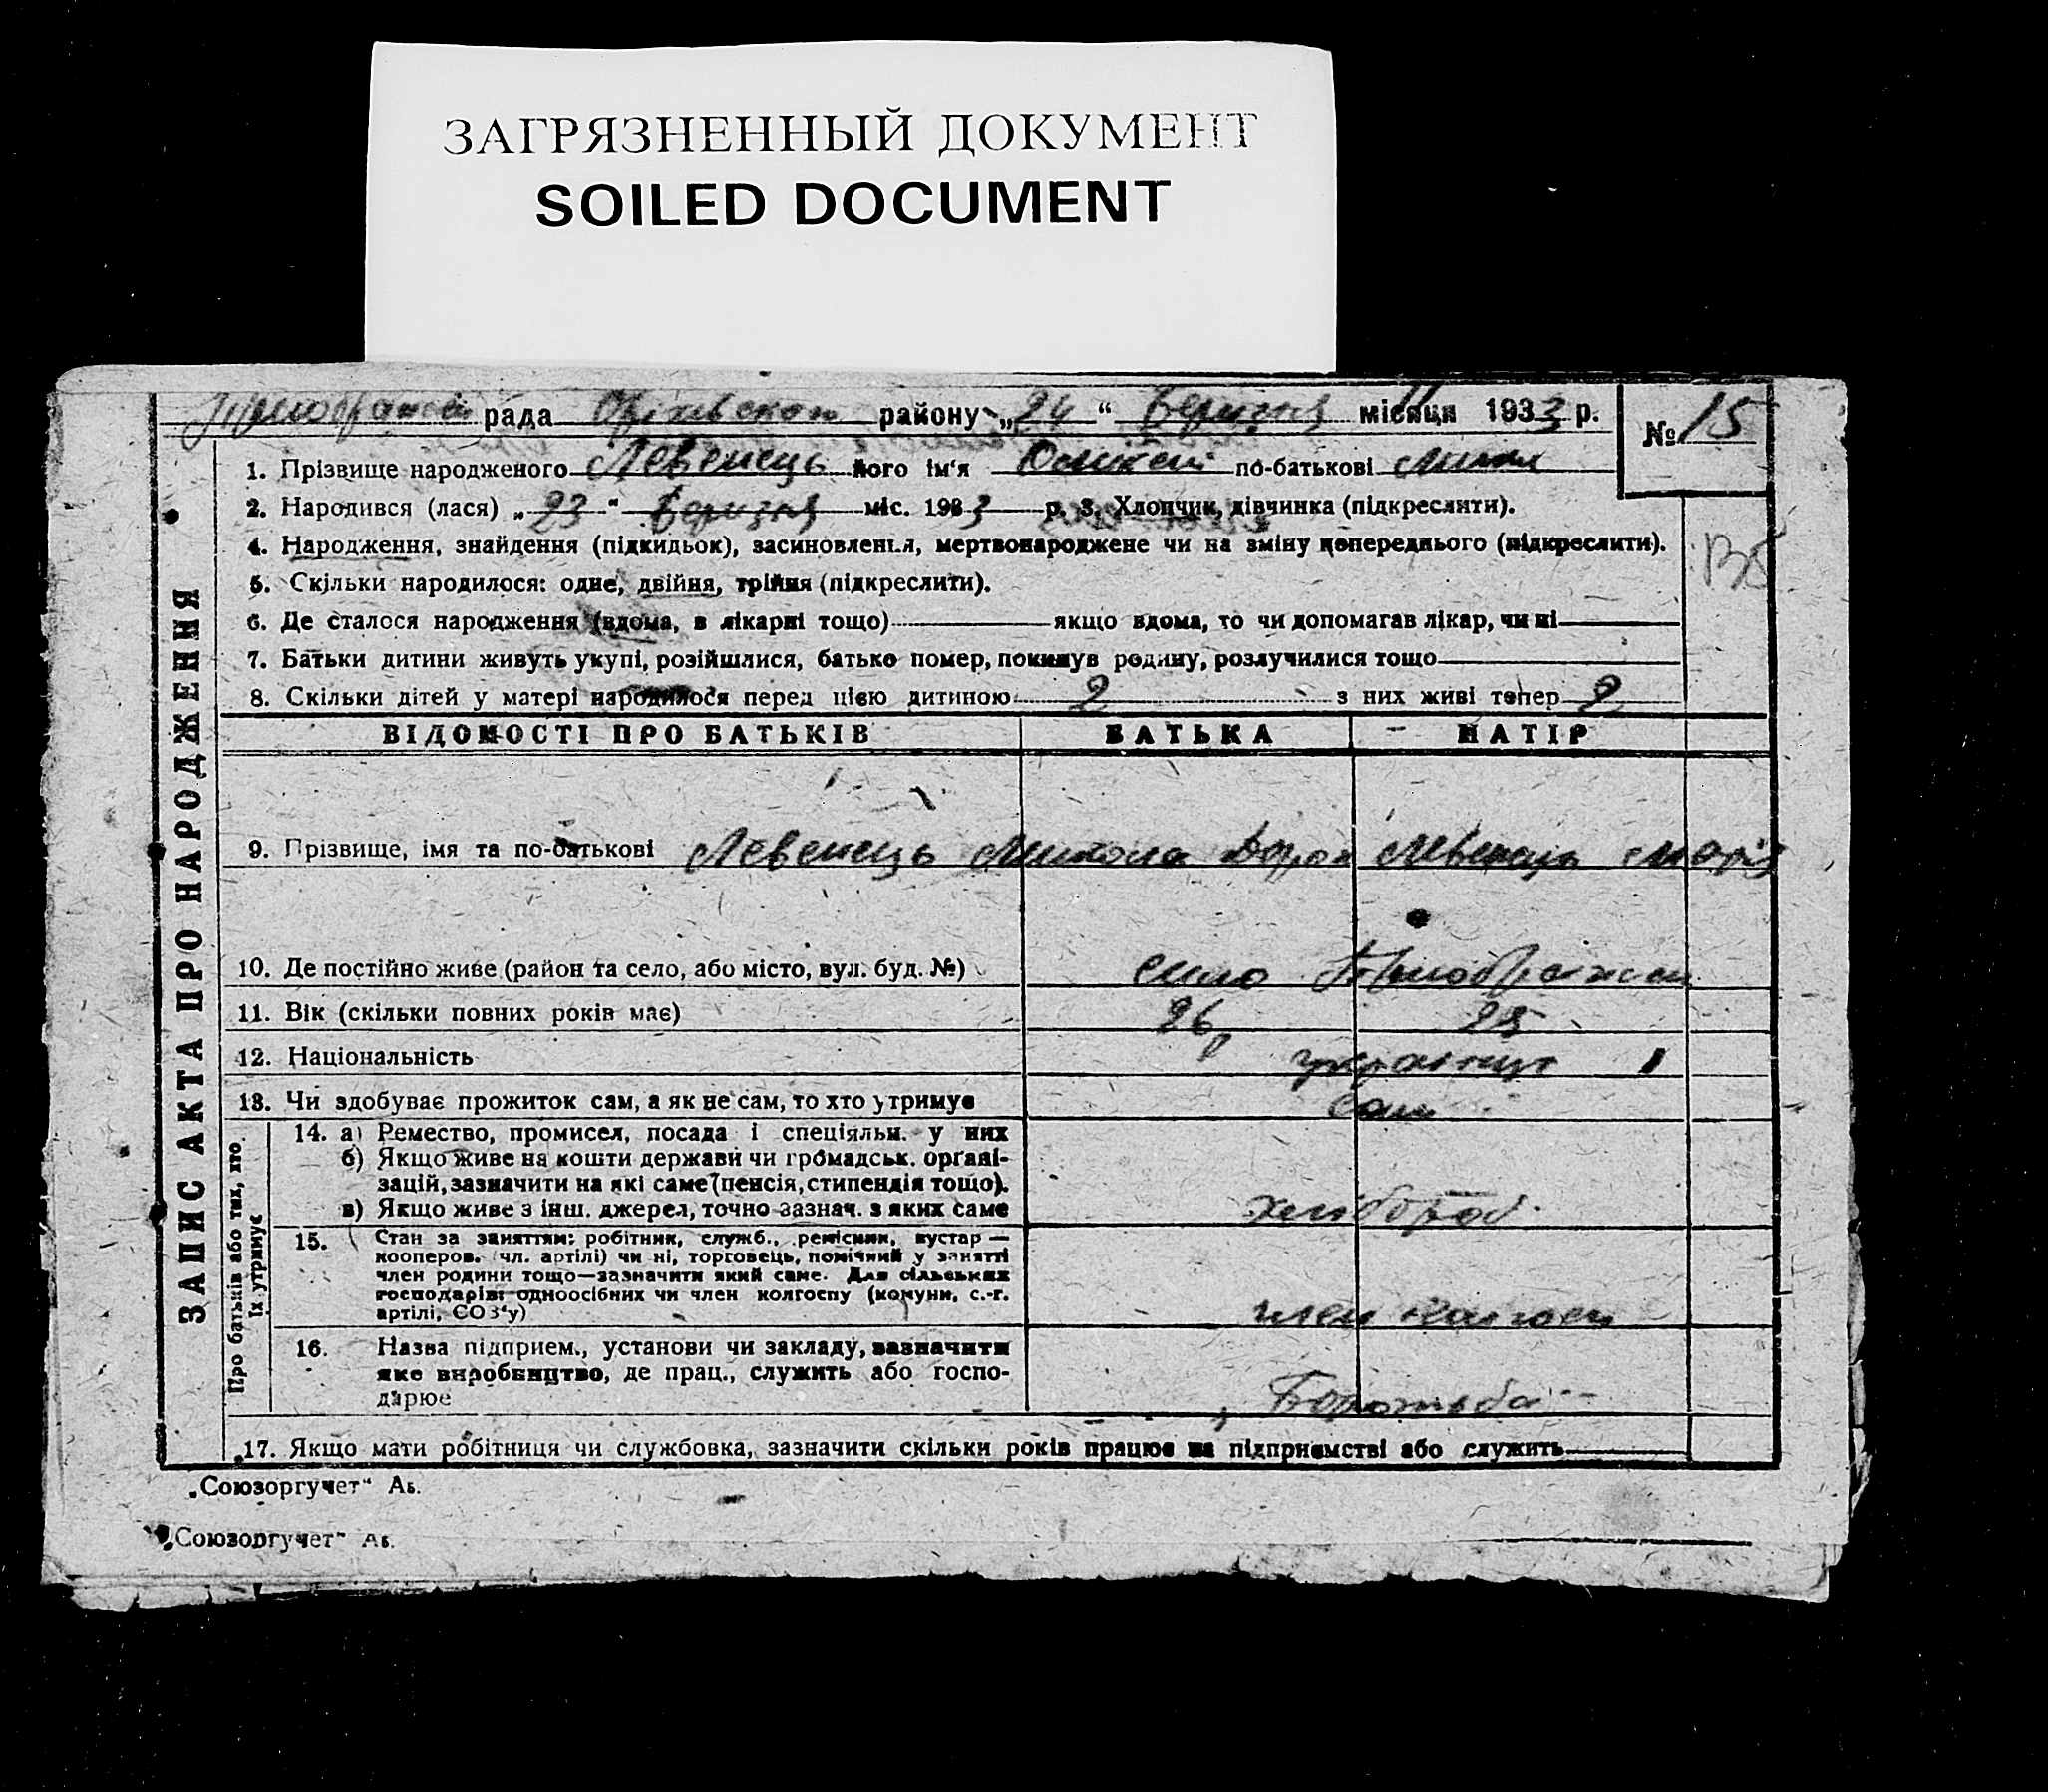 ЗАГРЯЗНЕННЫЙ ДОКУМЕНТ
SOILED DOCUMENT
рада Оріхівском району „24 “ березня місяця 1933 р.
№ 15
1. Прізвище народженого Левенець його ім'я по-батькові Микол
2. Народився (лася) „ 23 “ березня міс. 1933 р. 3. Хлопчик, дівчинка (підкреслити).
4. Народження, знайдення (підкидьок), засиновлення, мертвонароджене чи на зміну попереднього (підкреслити).
5. Скільки народилося: одне, двійня, трійня (підкреслити).
6. Де сталося народження (вдома, в лікарні тощо) якщо вдома, то чи допомагав лікар, чи ні
7. Батьки дитини живуть укупі, розійшлися, батько помер, покинув родину, розлучилися тощо
8. Скільки дітей у матері народилося перед цією дитиною 2 з них живі тепер 2
ВІДОМОСТІ ПРО БАТЬКІВ БАТЬКА НАТІР
9. Прізвище, імя та по-батькові Левенець Микола Левенець Марія
10. Де постійно живе (район та село, або місто, вул. буд. №) село
11. Вік (скільки повних років має) 26 р 25
12. Національність українці
13. Чи здобуває прожиток сам, а як не сам, то хто утримує сам
14. а) Ремество, промисел, посада і спеціяльн. у них
б) Якщо живе на кошти держави чи громадськ. органі-
зацій, зазначити на які саме (пенсія, стипендія тощо).
в) Якщо живе з інш. джерел, точно зазнач. з яких саме хлібороб
15. Стан за заняттям: робітник, служб., ремісник, кустар —
кооперов. (чл. артілі) чи ні, торговець, помічний у занятті
член родини тощо—зазначити який саме. Для сільських
господарів: одноосібних чи член колгоспу (комуни, с.-г.
артілі, СОЗ'у) член колгосп
16. Назва підприєм., установи чи закладу, зазначити
яке виробництво, де прац., служить або госпо-
дарює Боротьба
17. Якщо мати робітниця чи службовка, зазначити скільки років працює на підприємстві або служить
ЗАПИС АКТА ПРО НАРОДЖЕННЯ
Про батьків або тих, хто
їх утримує
„Союзоргучет“ Аб.
„Союзоргучет“ Аб.